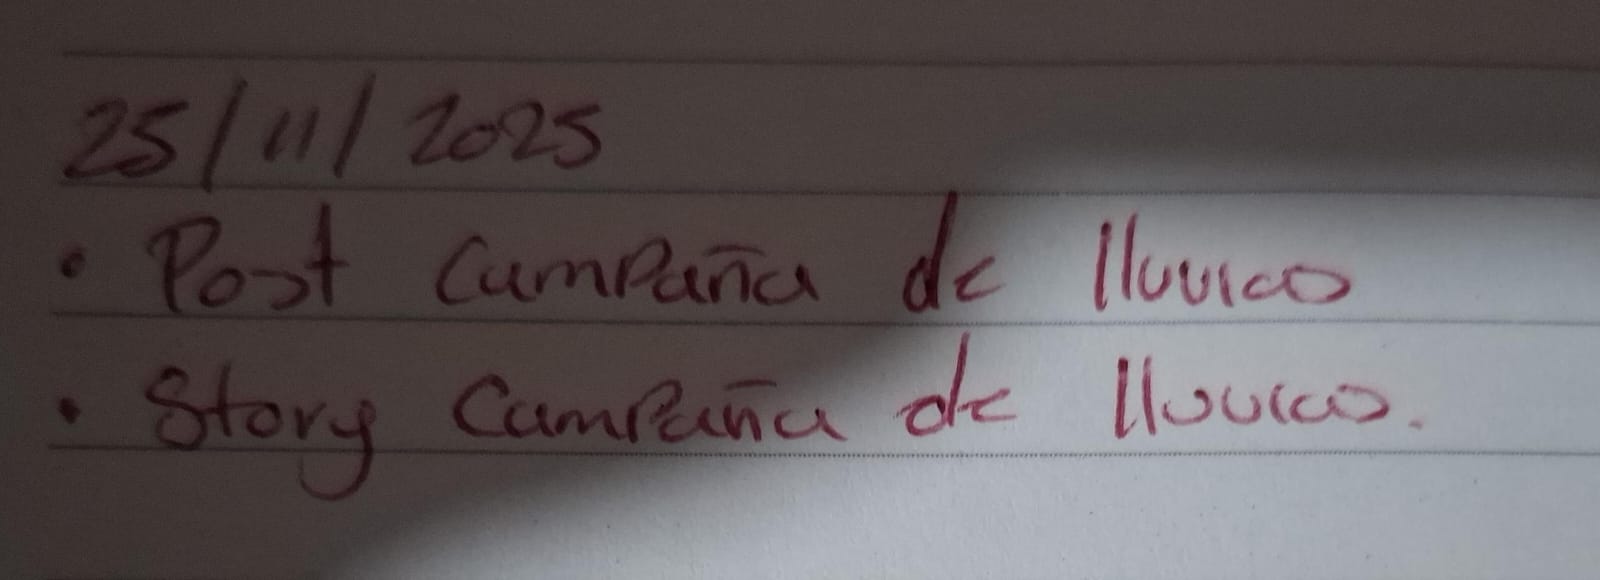 25/11/2025
• Post Campaña de
• Story Campaña de